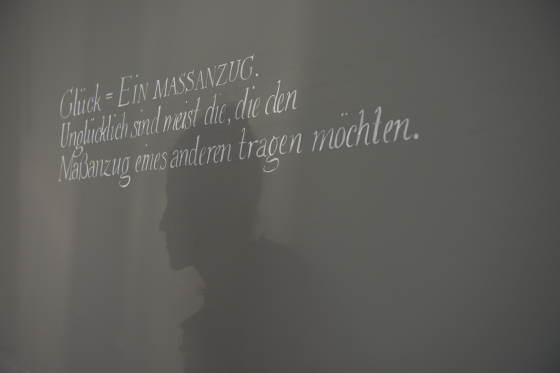 Glück = EIN MASSANZUG.
Unglücklich sind meist die, die den
Maßanzug eines anderen tragen möchten.